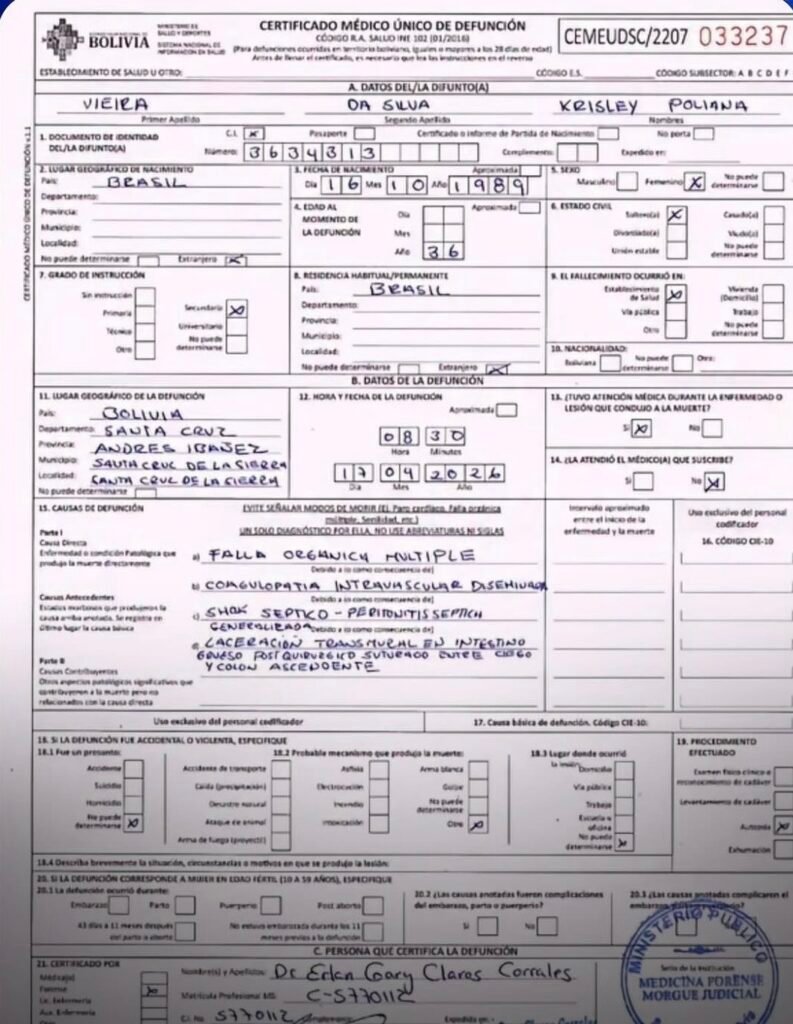 BOLIVIA
MINISTERIO DE SALUD Y DEPORTES
SISTEMA NACIONAL DE INFORMACIÓN EN SALUD
CERTIFICADO MÉDICO ÚNICO DE DEFUNCIÓN
CÓDIGO R.A. SALUD INE 102 (01/2016)
(Para defunciones ocurridas en territorio boliviano, iguales o mayores a los 28 días de edad)
Antes de llenar el certificado, es necesario que lea las instrucciones en el reverso
CEMEUDSC/2207 033237
ESTABLECIMIENTO DE SALUD U OTRO: CÓDIGO E.S. CÓDIGO SUBSECTOR: A B C D E F
A. DATOS DEL/LA DIFUNTO(A)
VIEIRA DA SILVA KRISLEY POLIANA
Primer Apellido Segundo Apellido Nombres
1. DOCUMENTO DE IDENTIDAD DEL/LA DIFUNTO(A)
C.I. X Pasaporte Certificado o Informe de Partida de Nacimiento No porta
Número: 3634313 Complemento: Expedido en:
2. LUGAR GEOGRÁFICO DE NACIMIENTO
País: BRASIL
Departamento:
Provincia:
Municipio:
Localidad:
No puede determinarse Extranjero X
3. FECHA DE NACIMIENTO Aproximada
Día 16 Mes 10 Año 1989
4. EDAD AL MOMENTO DE LA DEFUNCIÓN Aproximada
Día
Mes
Año 36
5. SEXO
Masculino Femenino X No puede determinarse
6. ESTADO CIVIL
Soltero(a) X Casado(a)
Divorciado(a) Viudo(a)
Unión estable No puede determinarse
7. GRADO DE INSTRUCCIÓN
Sin instrucción
Primaria Secundaria X
Técnico Universitario
Otro No puede determinarse
8. RESIDENCIA HABITUAL/PERMANENTE
País: BRASIL
Departamento:
Provincia:
Municipio:
Localidad:
No puede determinarse Extranjero X
9. EL FALLECIMIENTO OCURRIÓ EN:
Establecimiento de Salud X Vivienda (Domicilio)
Vía pública Trabajo
Otro No puede determinarse
10. NACIONALIDAD:
Boliviana No puede determinarse Otra:
B. DATOS DE LA DEFUNCIÓN
11. LUGAR GEOGRÁFICO DE LA DEFUNCIÓN
País: BOLIVIA
Departamento: SANTA CRUZ
Provincia: ANDRES IBAÑEZ
Municipio: SANTA CRUZ DE LA SIERRA
Localidad: SANTA CRUZ DE LA SIERRA
No puede determinarse
12. HORA Y FECHA DE LA DEFUNCIÓN
Aproximada
08 30
Hora Minutos
17 04 2026
Día Mes Año
13. ¿TUVO ATENCIÓN MÉDICA DURANTE LA ENFERMEDAD O LESIÓN QUE CONDUJO A LA MUERTE?
Si X No
14. ¿LA ATENDIÓ EL MÉDICO(A) QUE SUSCRIBE?
Si No X
15. CAUSAS DE DEFUNCIÓN
EVITE SEÑALAR MODOS DE MORIR (Ej. Paro cardíaco, Falla orgánica múltiple, Senilidad, etc.)
UN SOLO DIAGNÓSTICO POR ELLA, NO USE ABREVIATURAS NI SIGLAS
Intervalo aproximado entre el inicio de la enfermedad y la muerte
Uso exclusivo del personal codificador
16. CÓDIGO CIE-10
Parte I
Causa Directa
Enfermedad o condición Patológica que produjo la muerte directamente
a) FALLA ORGANICA MULTIPLE
Debido a (o como consecuencia de)
b) COAGULOPATIA INTRAVASCULAR DISEMINADA
Debido a (o como consecuencia de)
Causas Antecedentes
Estados morbosos que produjeron la causa arriba anotada. Se registra en último lugar la causa básica
c) SHOK SEPTICO - PERITONITIS SEPTICA
GENERALIZADA
Debido a (o como consecuencia de)
LACERACIÓN TRANSMURAL EN INTESTINO
GRUESO POST QUIRURGICO SUTURADO ENTRE CIEGO
Y COLON ASCENDENTE
Parte II
Causas Contribuyentes
Otros aspectos patológicos significativos que contribuyeron a la muerte pero no relacionados con la causa directa
Uso exclusivo del personal codificador 17. Causa básica de defunción. Código CIE-10:
18. SI LA DEFUNCIÓN FUE ACCIDENTAL O VIOLENTA, ESPECIFIQUE
18.1 Fue un presunto:
Accidente
Suicidio
Homicidio
No puede determinarse X
18.2 Probable mecanismo que produjo la muerte:
Accidente de transporte Asfixia Arma blanca
Caída (precipitación) Electrocución Golpe
Desastre natural Incendio No puede determinarse
Ataque de animal Intoxicación Otro X
Arma de fuego (proyectil)
18.3 Lugar donde ocurrió la lesión:
Domicilio
Vía pública
Trabajo
Escuela u oficina
No puede determinarse X
19. PROCEDIMIENTO EFECTUADO
Examen físico clínico o reconocimiento de cadáver
Levantamiento de cadáver
Autopsia X
Exhumación
18.4 Describa brevemente la situación, circunstancias o motivos en que se produjo la lesión:
20. SI LA DEFUNCIÓN CORRESPONDE A MUJER EN EDAD FÉRTIL (10 A 59 AÑOS), ESPECIFIQUE
20.1 La defunción ocurrió durante:
Embarazo Parto Puerperio Post aborto
43 días a 11 meses después del parto o aborto No estuvo embarazada durante los 11 meses previos a la defunción
20.2 ¿Las causas anotadas fueron complicaciones del embarazo, parto o puerperio?
Si No
20.3 ¿Las causas anotadas complicaron el embarazo,
C. PERSONA QUE CERTIFICA LA DEFUNCIÓN
21. CERTIFICADO POR
Médico(a)
Forense X
Lic. Enfermería
Aux. Enfermería
Nombre(s) y Apellidos: Dr Erlan Gary Claros Corrales
Matrícula Profesional MS: C-5770112
C.I. No. 5770112
Expedido en:
MINISTERIO PUBLICO
Sello de la Institución
MEDICINA FORENSE
MORGUE JUDICIAL
CERTIFICADO MÉDICO ÚNICO DE DEFUNCIÓN v.1.1